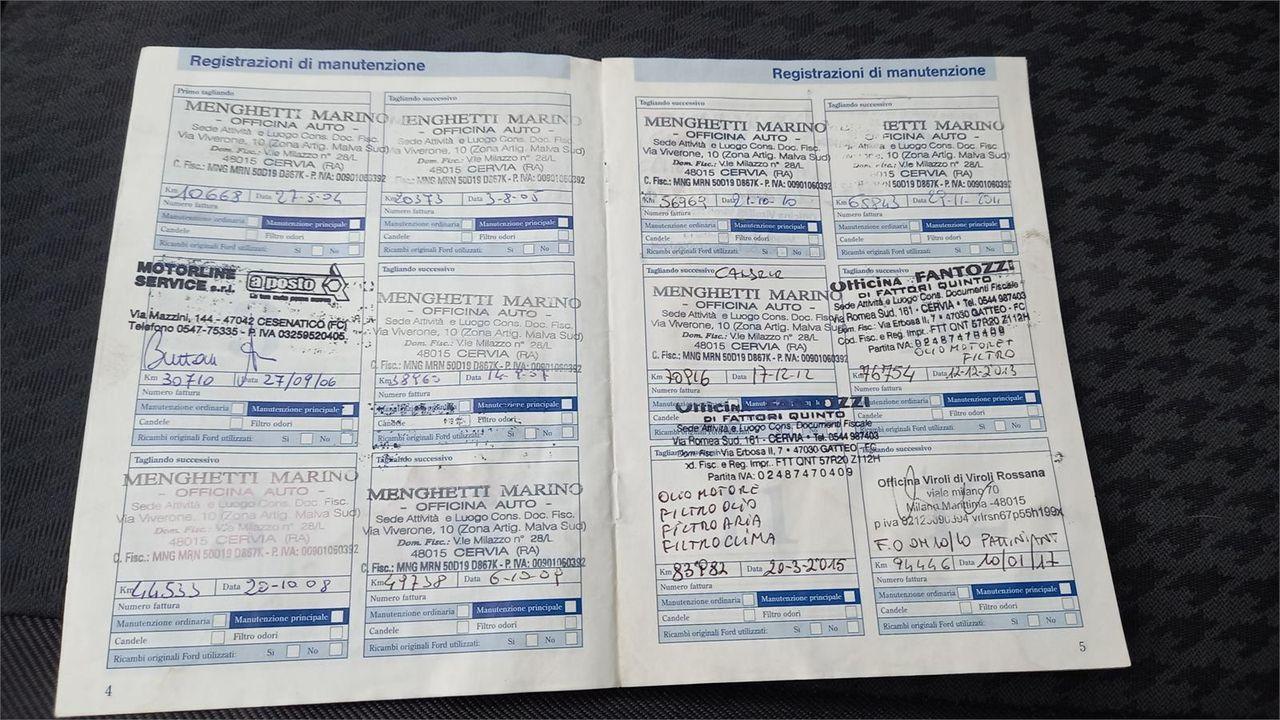 Registrazioni di manutenzione
Primo tagliando
MENGHETTI MARINO
- OFFICINA AUTO -
Sede Attività e Luogo Cons. Doc. Fisc.
Via Viverone, 10 (Zona Artig. Malva Sud)
Dom. Fisc.: V.le Milazzo n° 28/L
48015 CERVIA (RA)
C. Fisc.: MNG MRN 50D19 D867K - P. IVA: 00901060392
Km 10668 Data 27-5-04
Numero fattura
Manutenzione ordinaria Manutenzione principale
Candele Filtro odori
Ricambi originali Ford utilizzati: Si No
Tagliando successivo
MENGHETTI MARINO
- OFFICINA AUTO -
Sede Attività e Luogo Cons. Doc. Fisc.
Via Viverone, 10 (Zona Artig. Malva Sud)
Dom. Fisc.: V.le Milazzo n° 28/L
48015 CERVIA (RA)
C. Fisc.: MNG MRN 50D19 D867K - P. IVA: 00901060392
Km 20373 Data 3-8-05
Numero fattura
Manutenzione ordinaria Manutenzione principale
Candele Filtro odori
Ricambi originali Ford utilizzati: Si No
MOTORLINE
SERVICE s.r.l.
a posto
Via Mazzini, 144 - 47042 CESENATICO (FC)
Telefono 0547-75335 - P. IVA 03259520405
Km 30710 Data 27/09/06
Numero fattura
Manutenzione ordinaria Manutenzione principale
Candele Filtro odori
Ricambi originali Ford utilizzati: Si No
Tagliando successivo
MENGHETTI MARINO
- OFFICINA AUTO -
Sede Attività e Luogo Cons. Doc. Fisc.
Via Viverone, 10 (Zona Artig. Malva Sud)
Dom. Fisc.: V.le Milazzo n° 28/L
48015 CERVIA (RA)
C. Fisc.: MNG MRN 50D19 D867K - P. IVA: 00901060392
Km 38963 Data
Numero fattura
Manutenzione principale
Candele
Ricambi originali Ford utilizzati: Si No
Tagliando successivo
MENGHETTI MARINO
- OFFICINA AUTO -
Sede Attività e Luogo Cons. Doc. Fisc.
Via Viverone, 10 (Zona Artig. Malva Sud)
Dom. Fisc.: V.le Milazzo n° 28/L
48015 CERVIA (RA)
C. Fisc.: MNG MRN 50D19 D867K - P. IVA: 00901060392
Km 44533 Data 20-10-08
Numero fattura
Manutenzione ordinaria Manutenzione principale
Candele Filtro odori
Ricambi originali Ford utilizzati: Si No
Tagliando successivo
MENGHETTI MARINO
- OFFICINA AUTO -
Sede Attività e Luogo Cons. Doc. Fisc.
Via Viverone, 10 (Zona Artig. Malva Sud)
Dom. Fisc.: V.le Milazzo n° 28/L
48015 CERVIA (RA)
C. Fisc.: MNG MRN 50D19 D867K - P. IVA: 00901060392
Km 49738 Data 6-10-09
Numero fattura
Manutenzione ordinaria Manutenzione principale
Candele Filtro odori
Ricambi originali Ford utilizzati: Si No
4
Registrazioni di manutenzione
Tagliando successivo
MENGHETTI MARINO
- OFFICINA AUTO -
Sede Attività e Luogo Cons. Doc. Fisc.
Via Viverone, 10 (Zona Artig. Malva Sud)
Dom. Fisc.: V.le Milazzo n° 28/L
48015 CERVIA (RA)
C. Fisc.: MNG MRN 50D19 D867K - P. IVA: 00901060392
Km 56969 Data 21-10-10
Numero fattura
Manutenzione ordinaria Manutenzione principale
Candele Filtro odori
Ricambi originali Ford utilizzati: Si No
Tagliando successivo
MENGHETTI MARINO
- OFFICINA AUTO -
Luogo Cons. Doc. Fisc.
10 (Zona Artig. Malva Sud)
V.le Milazzo n° 28/L
48015 CERVIA (RA)
C. Fisc.: MNG MRN 50D19 D867K - P. IVA: 00901060392
Km 65843 Data 29-11-2011
Numero fattura
Manutenzione ordinaria Manutenzione principale
Candele Filtro odori
Ricambi originali Ford utilizzati: Si No
Tagliando successivo
MENGHETTI MARINO
- OFFICINA AUTO -
Sede Attività e Luogo Cons. Doc. Fisc.
Via Viverone, 10 (Zona Artig. Malva Sud)
Dom. Fisc.: V.le Milazzo n° 28/L
48015 CERVIA (RA)
C. Fisc.: MNG MRN 50D19 D867K - P. IVA: 00901060392
Km 70916 Data 17-12-12
Numero fattura
Manutenzione
Candele
Tagliando successivo
Officina FANTOZZI
DI FATTORI QUINTO
Sede Attività e Luogo Cons. Documenti Fiscale
Via Romea Sud, 161 - CERVIA • Tel. 0544 987403
Dom. Fisc.: Via Erbosa II, 7 • 47030 GATTEO - FC
Cod. Fisc. e Reg. Impr. FTT QNT 57R20 Z112H
Partita IVA:
OLIO MOTORE+
FILTRO
Km 76754 Data 12-12-2013
Numero fattura
Manutenzione ordinaria Manutenzione principale
Candele Filtro odori
Ricambi originali Ford utilizzati: Si No
Officina FANTOZZI
DI FATTORI QUINTO
Sede Attività e Luogo Cons. Documenti Fiscale
Via Romea Sud, 161 - CERVIA • Tel. 0544 987403
Dom. Fisc.: Via Erbosa II, 7 • 47030 GATTEO - FC
Fisc. e Reg. Impr. FTT QNT 57R20 Z112H
Partita IVA: 02487470409
OLIO MOTORE
FILTRO OLIO
FILTRO ARIA
FILTRO CLIMA
Km 83982 Data 20-3-2015
Numero fattura
Manutenzione ordinaria Manutenzione principale
Candele Filtro odori
Ricambi originali Ford utilizzati: Si No
Tagliando successivo
Officina Viroli di Viroli Rossana
viale milano 70
Milano Marittima - 48015
F.O
Km 94446 Data 10/01/17
Numero fattura
Manutenzione ordinaria Manutenzione principale
Candele Filtro odori
Ricambi originali Ford utilizzati: Si No
5